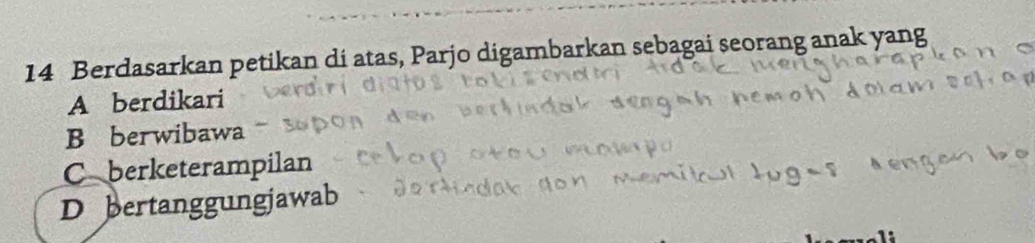 14 Berdasarkan petikan di atas, Parjo digambarkan sebagai seorang anak yang
A berdikari berdiri diatas kaki sendiri tidak mengharapkan
B berwibawa - sopan dan bertindak dengan hemah dalam
C berketerampilan - cekap atau mampu
D bertanggungjawab - bertindak dan memikul tugas dengan